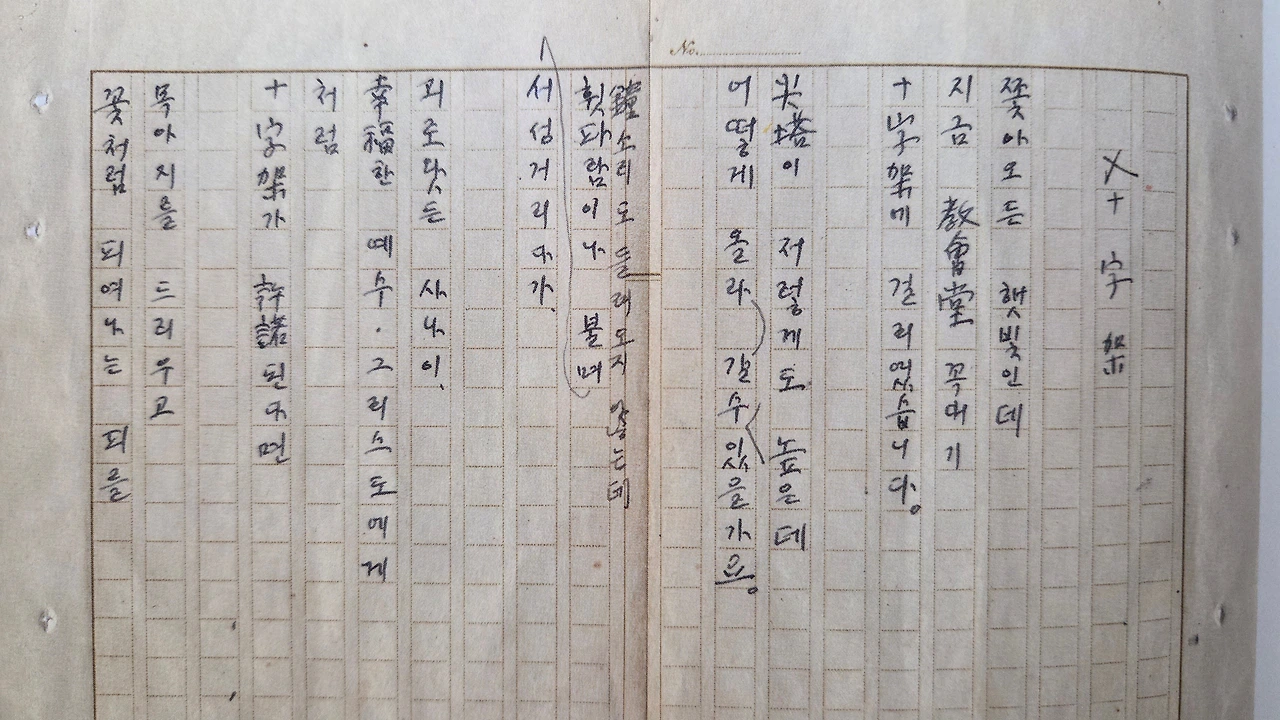 No.
十字架
쫓아오든 햇빛인데
지금 敎會堂 꼭대기
十字架에 걸리였습니다。
尖塔이 저렇게도 높은데
어떻게 올라 갈수 있을가요。
鐘소리도 들려오지 않는데
휫파람이나 불며
서성거리다가、
괴로왓든 사나이、
幸福한 예수·그리스도에게
처럼
十字架가 許諾된다면
목아지를 드리우고
꽃처럼 피여나는 피를